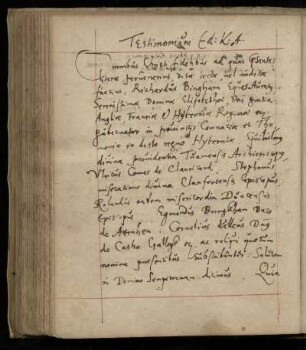 Testimonium Ed: K. A.
Omnibus Christi fidelibus ad quos præsentes
literæ pervenerint visæ lectæ, vel auditæ
fuerint, Richardus Bingham Eques Auratus
Serenissimæ Dominæ Elizabethæ Dei gratia
Angliæ Franciæ & Hyberniæ Reginæ
gubernator in provinciis Connaciæ et Tho
moniæ in dicto regno Hyberniæ
divina providentia Tuamensis Archiepiscopus
Ulricus Comes de Clanricard. Stephanus
miseratione divina Clonfertensis Episcopus
Rolandus eadem misericordia Duacensis
Episcopus Edmundus Bermingham Baro
de Athenhen. Cornelius
de Castro et reliqui quorum
nomina præsentibus subscribuntur. Salutem
in Domino Sempiternam dicimus Quia